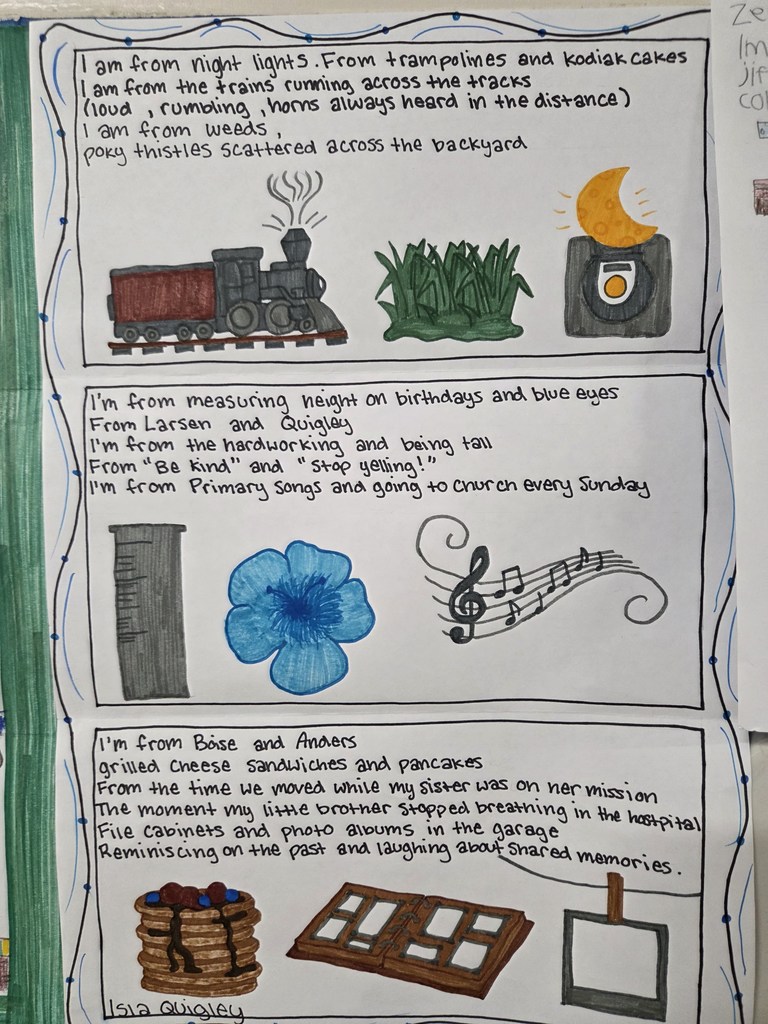 I am from night lights. From trampolines and kodiak cakes
I am from the trains running across the tracks
(loud , rumbling , horns always heard in the distance)
I am from weeds ,
poky thistles scattered across the backyard
I'm from measuring height on birthdays and blue eyes
From Larsen and Quigley
I'm from the hardworking and being tall
From "Be kind" and "Stop yelling!"
I'm from Primary songs and going to church every Sunday
I'm from Boise and Anders
grilled cheese sandwiches and pancakes
From the time we moved while my sister was on her mission
The moment my little brother stopped breathing in the hostpital
File cabinets and photo albums in the garage
Reminiscing on the past and laughing about shared memories.
Isla Quigley